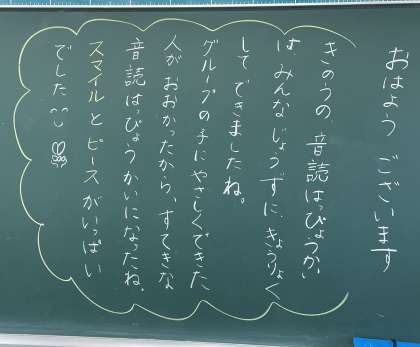 おはよう ございます
きのうの 音読はっぴょうかい
は みんな じょうずに、きょうりょく
して できましたね。
グループの子にやさしくできた
人が おおかったから、すてきな
音読はっぴょうかいになったね。
スマイル と ピース がいっぱい
でした